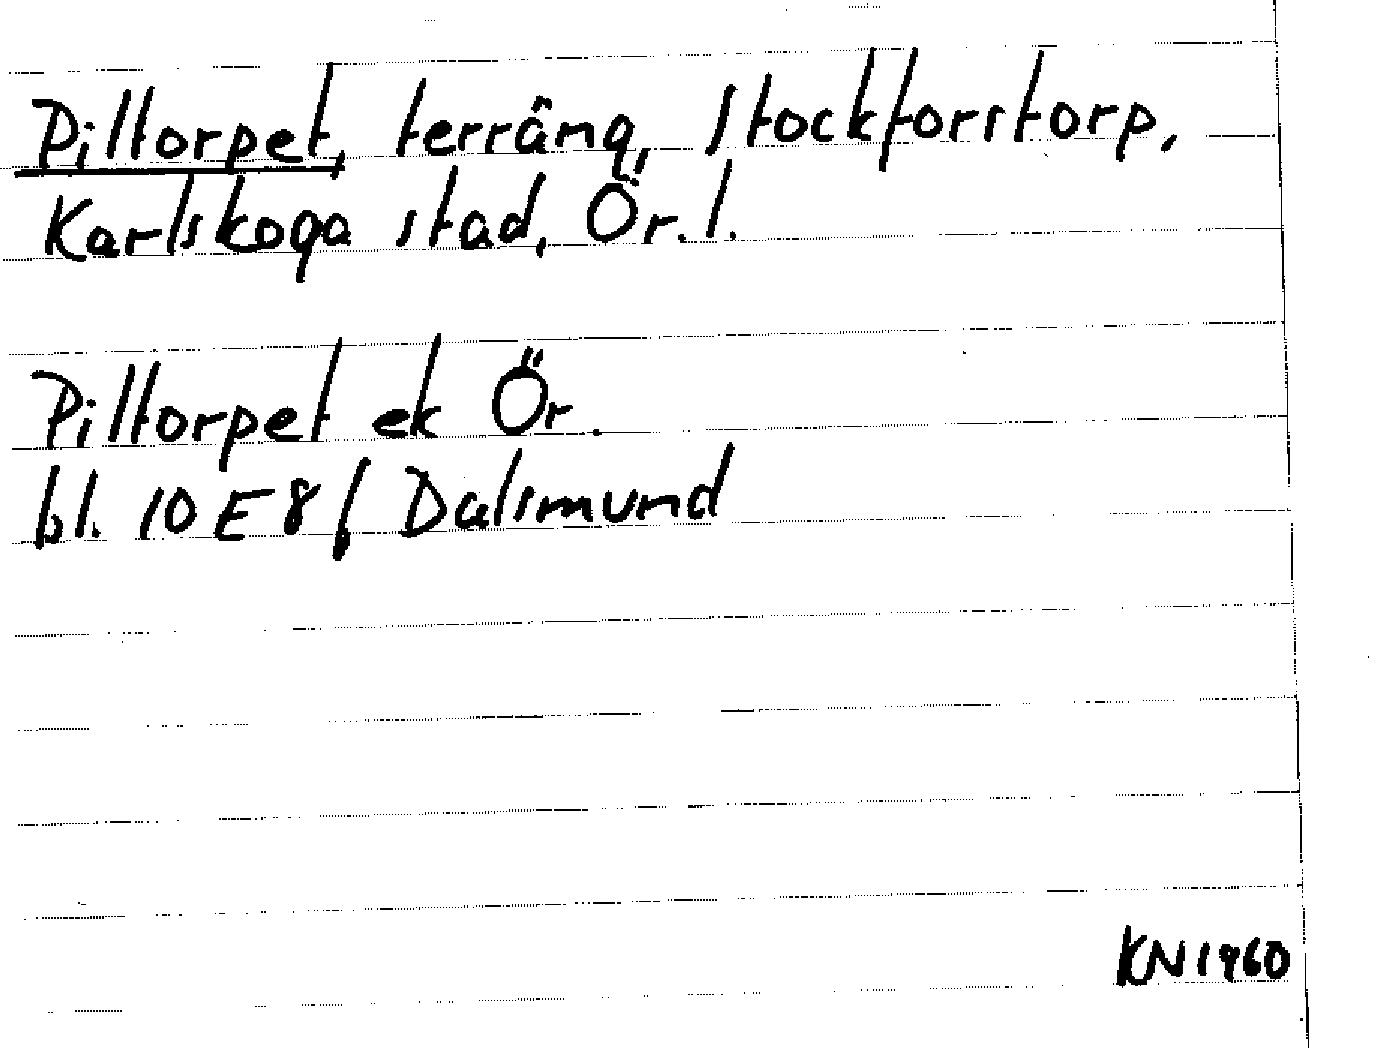 Piltorpet, terräng, Stockforstorp,
Karlskoga stad, Ör. l.
Piltorpet ek Ör.
bl. 10 E 8f Dalsmund
KN 1960